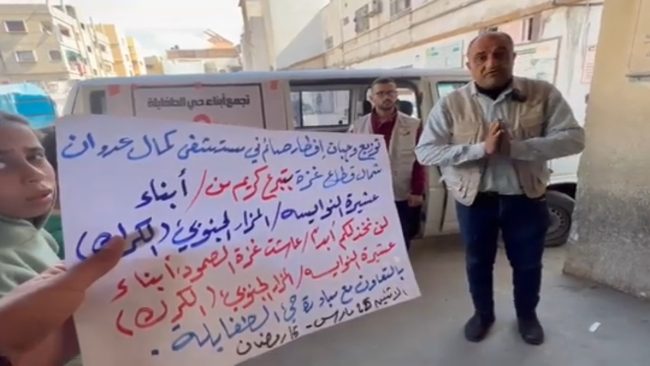 تجمع أبناء حي الطفايلة
توزيع وجبات إفطار صائم في مستشفى كمال عدوان
شمال قطاع غزة بتبرع كريم من / أبناء
عشيرة النوايسه / المزار الجنوبي / (الكرك)
لن نخذلكم أبداً / عاشت غزة الصمود: أبناء
عشيرة النوايسه / المزار الجنوبي / (الكرك)
بالتعاون مع مبادرة حي الطفايلة .
الاثنين 25 مارس - 15 رمضان